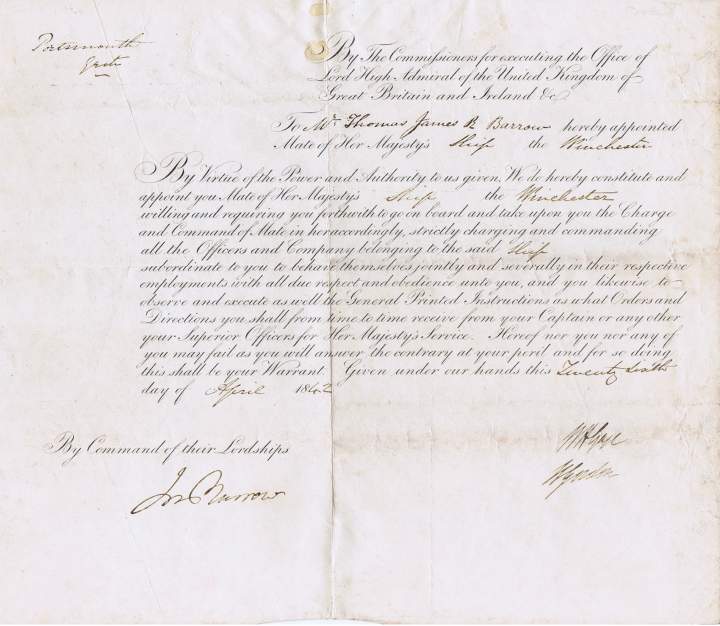 Portsmouth
By The Commissioners for executing the Office of
Lord High Admiral of the United Kingdom of
Great Britain and Ireland &c
To Mr. Thomas James R Barrow hereby appointed
Mate of Her Majesty's Ship the Winchester
By Virtue of the Power and Authority to us given, We do hereby constitute and
appoint you Mate of Her Majesty's Ship the Winchester
willing and requiring you forthwith to go on board and take upon you the Charge
and Command of Mate in her accordingly, strictly charging and commanding
all the Officers and Company belonging to the said Ship
subordinate to you to behave themselves jointly and severally in their respective
employments with all due respect and obedience unto you, and you likewise to
observe and execute as well the General Printed Instructions as what Orders and
Directions you shall from time to time receive from your Captain or any other
your Superior Officers for Her Majesty's Service. Hereof nor you nor any of
you may fail as you will answer the contrary at your peril and for so doing
this shall be your Warrant. Given under our hands this Twenty Sixth
day of April 1842
By Command of their Lordships
Jn Barrow